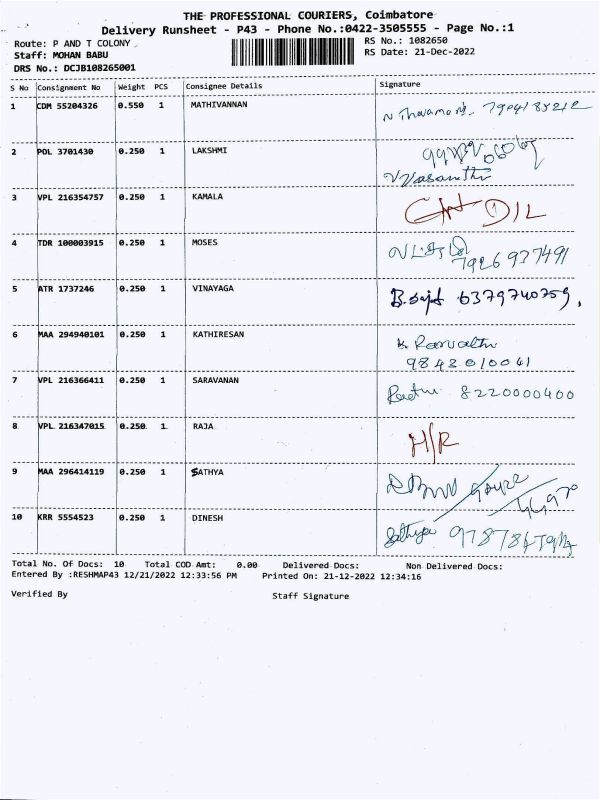 THE PROFESSIONAL COURIERS, Coimbatore
Delivery Runsheet - P43 - Phone No.:0422-3505555 - Page No.:1
Route: P AND T COLONY RS No.: 1082650
Staff: MOHAN BABU RS Date: 21-Dec-2022
DRS No.: DCJB108265001
S No Consignment No Weight PCS Consignee Details Signature
1 CDM 55204326 0.550 1 MATHIVANNAN
2 POL 3701430 0.250 1 LAKSHMI
V Vasanthi
3 VPL 216354757 0.250 1 KAMALA
D/L
4 TDR 100003915 0.250 1 MOSES
7926937491
5 ATR 1737246 0.250 1 VINAYAGA 6379740759,
6 MAA 294940101 0.250 1 KATHIRESAN
9842010041
7 VPL 216366411 0.250 1 SARAVANAN 8220000400
8 VPL 216347015 0.250 1 RAJA H/R
9 MAA 296414119 0.250 1 SATHYA
10 KRR 5554523 0.250 1 DINESH Sathya
Total No. Of Docs: 10 Total COD Amt: 0.00 Delivered Docs: Non Delivered Docs:
Entered By :RESHMAP43 12/21/2022 12:33:56 PM Printed On: 21-12-2022 12:34:16
Verified By Staff Signature